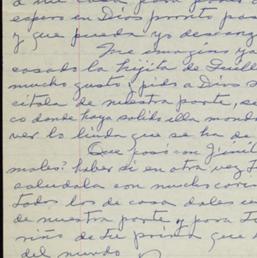 a mi casa para
espero en Dios pronto pas
y que pueda yo descans
Me imagino ya
casado la hijita de Guille
mucho gusto, pido a Dios s
cítala de nuestra parte, se
co donde haya salido ella
ver lo linda que se ha de
Que pasó con
males? haber si en otra vez
saludala con mucho cari
todos los de casa dales
de nuestra parte y para to
riño de tu prima que
del mundo